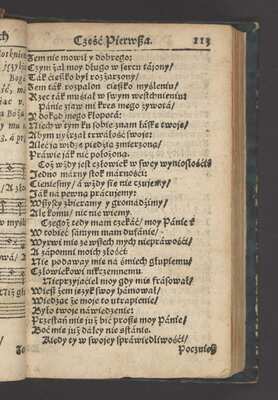 Cżęść Pierwßa. 113
Żem nie mowił y dobrego:
Czym żal moy długo w sercu táiony/
Ták ciężko był rozżarzony/
Żem ták rozpalon ciężko myśleniu/
Rzec ták musiał w swym westchnieniu:
Pánie ziaw mi kres mego żywotá/
Y dokąd mego kłopotá:
Niech w tym ku sobie znam łáskę twoię/
Abym uyźrzał trwáłość swoię:
Aleć ią widzę piędzią zmierzoną/
Práwie iák nic położoną.
Coż wżdy iest człowiek w swey wyniosłości
Jedno márny stok márności:
Cieniesmy/ á wżdy sie nie czuiemy/
Ják ná pewną prácuiemy:
Wßyscy zbieramy y gromádźimy/
Ale komu/ nic nie wiemy.
Czegoż tedy mam czekáć/ moy Pánie
W tobie sámym mam dufánie:
Wyrwi mię ze wßech mych niepráwości/
A zápomni moich złości:
Nie podaway mię ná śmiech głupiemu/
Człowiekowi nikczemnemu.
Nieprzyiaciel moy gdy mię frásował/
Wieß żem ięzyk swoy hámował/
Wiedząc że moie to utrapienie/
Było twoie náwiedzenie:
Przestań mię iuż bić proßę moy Pánie/
Boć mię iuż dáley nie stánie.
Kiedy ty w swoiey spráwiedliwości/
Poczniesz